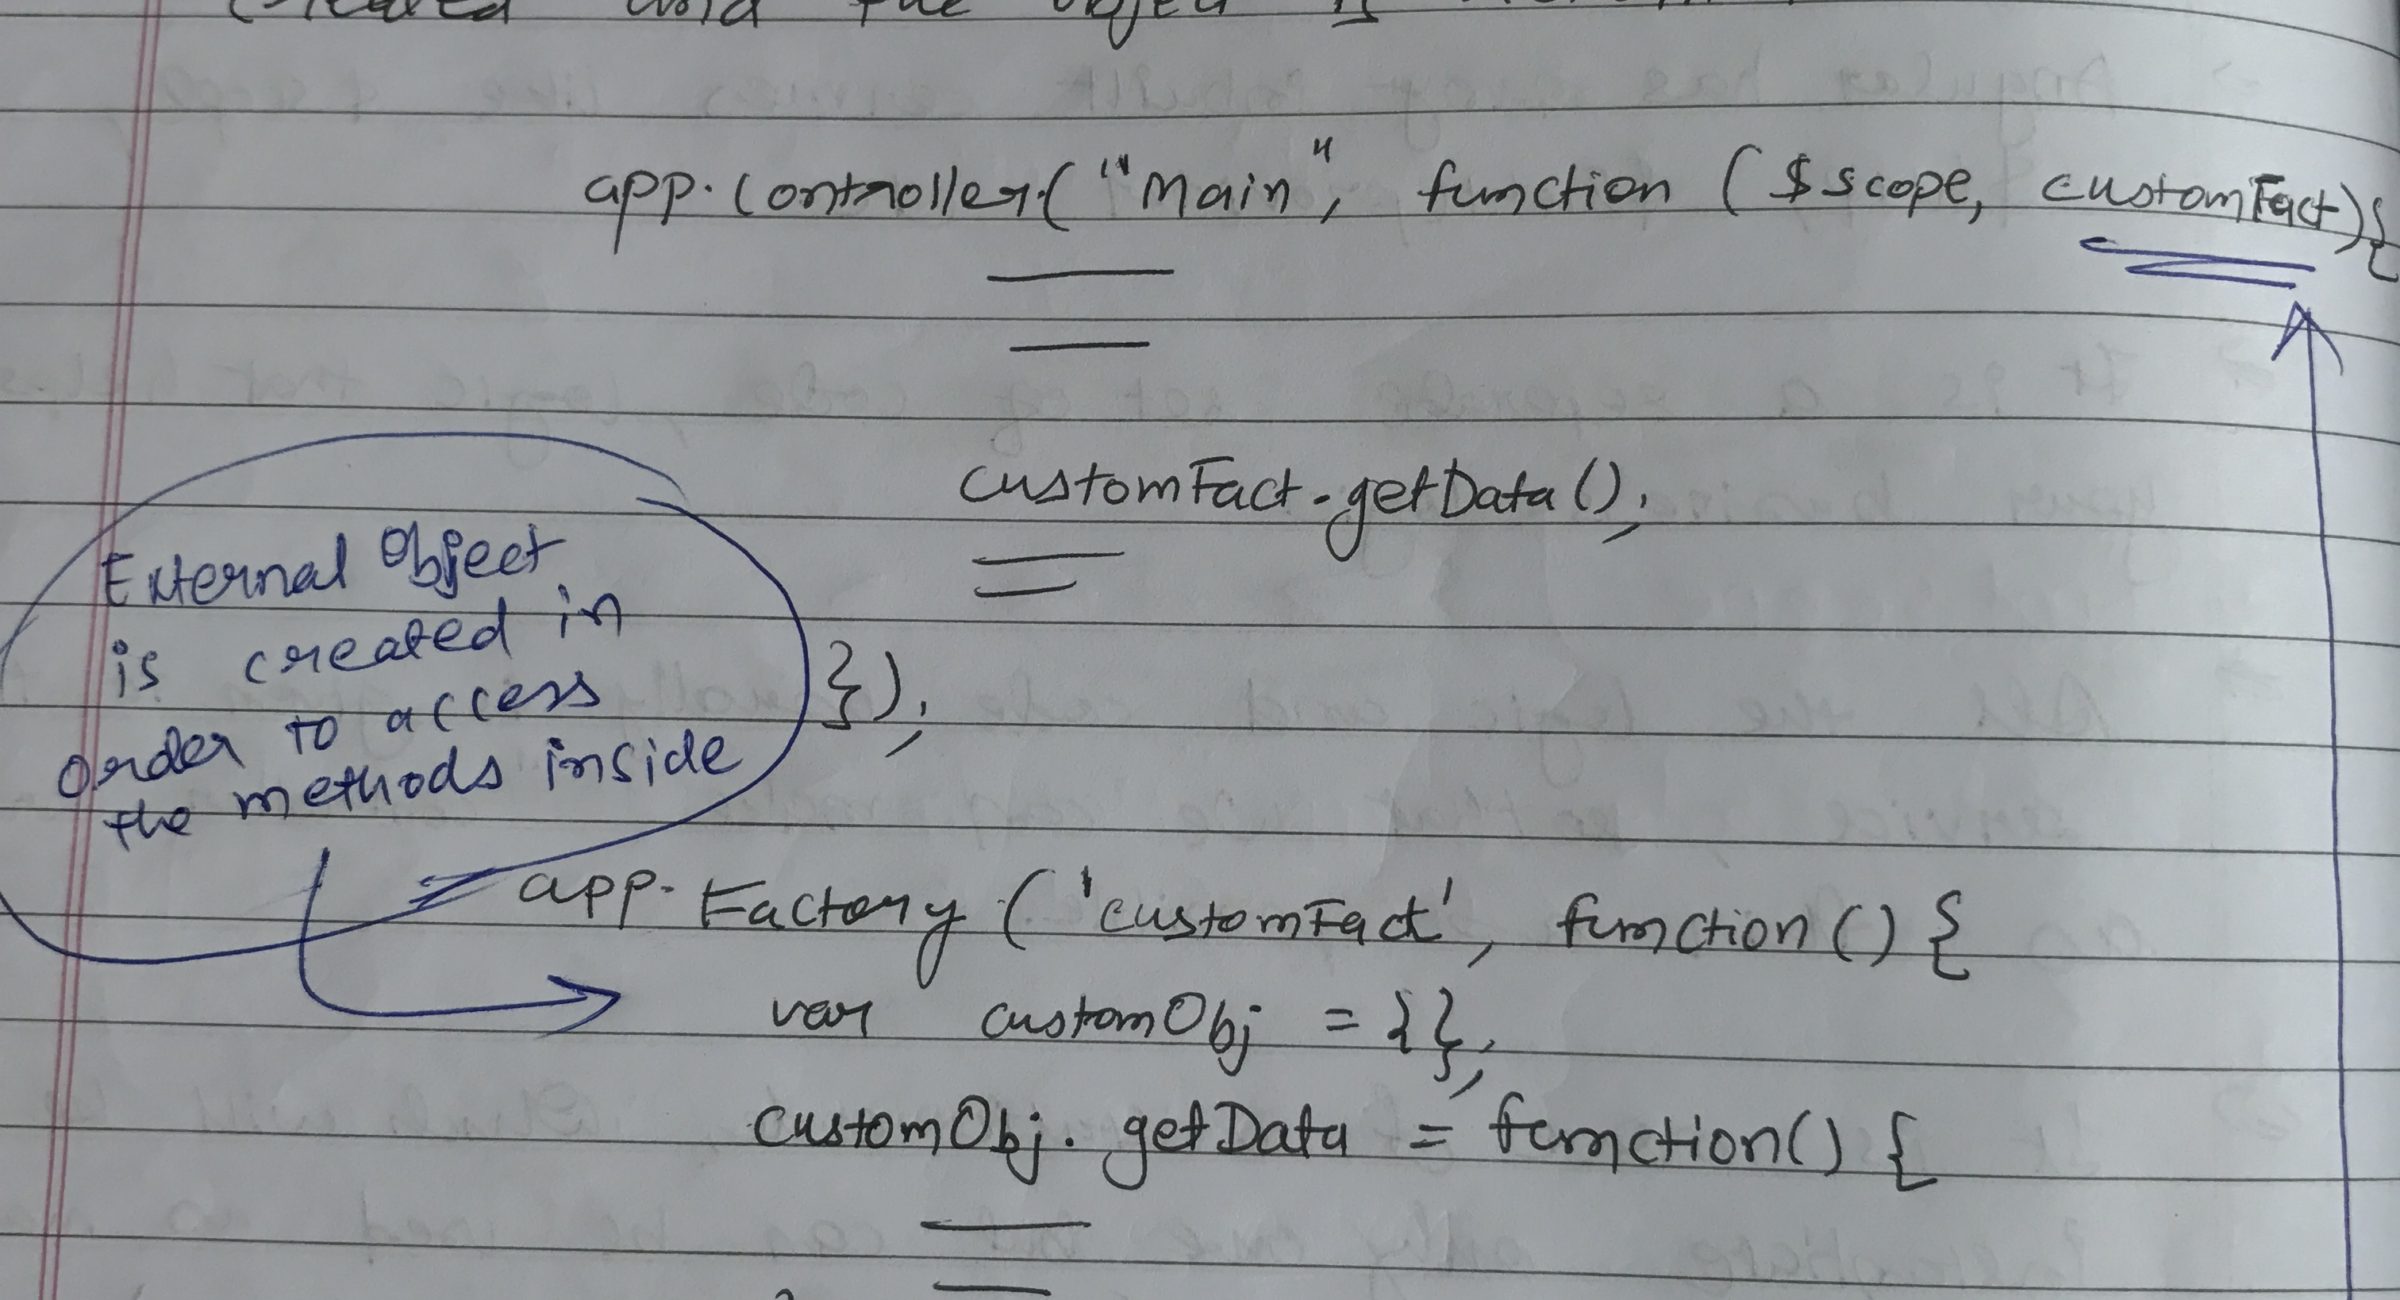 created and the object is
app.controller("Main", function ($scope, customFact){
customFact.getData();
External Object
is created in
order to access
the methods inside
});
app.Factory ('customFact', function () {
var customObj = {};
customObj.getData = function() {